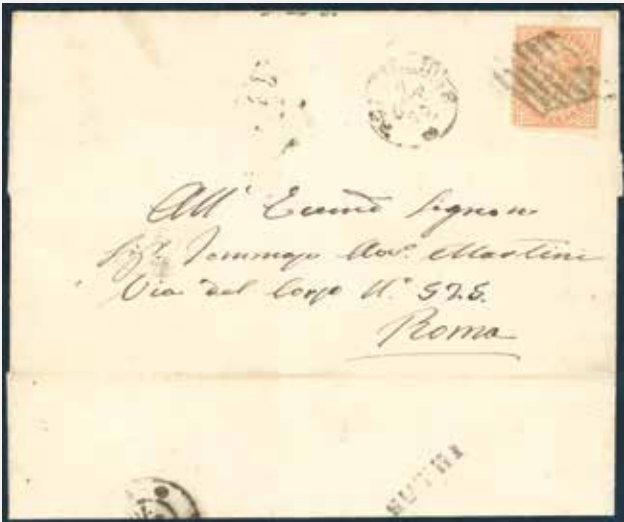 All' Eccmo Signore
Sigr. Tommaso Avv. Martini
Via del Corso No. 525.
Roma
SUTRI